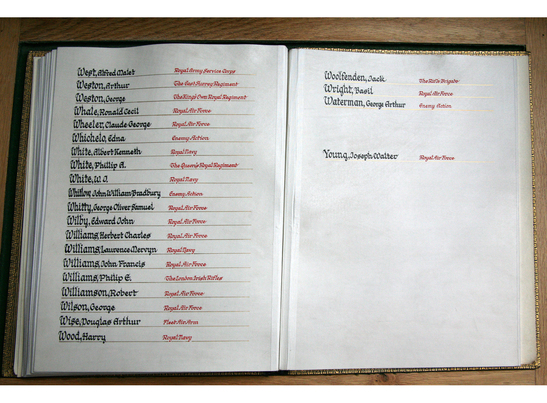 West, Alfred Malet Royal Army Service Corps
Weston, Arthur The East Surrey Regiment
Weston, George The King's Own Royal Regiment
Whale, Ronald Cecil Royal Air Force
Wheeler, Claude George Royal Air Force
Whichelo, Edna Enemy Action
White, Albert Kenneth Royal Navy
White, Phillip A. The Queen's Royal Regiment
White, W. J. Royal Navy
Whitlow, John William Bradbury Enemy Action
Whitty, George Oliver Samuel Royal Air Force
Wilby, Edward John Royal Air Force
Williams, Herbert Charles Royal Air Force
Williams, Laurence Mervyn Royal Navy
Williams, John Francis Royal Air Force
Williams, Philip E. The London Irish Rifles
Williamson, Robert Royal Air Force
Wilson, George Royal Air Force
Wise, Douglas Arthur Fleet Air Arm
Wood, Harry Royal Navy
Woolfenden, Jack The Rifle Brigade
Wright, Basil Royal Air Force
Waterman, George Arthur Enemy Action
Young, Joseph Walter Royal Air Force